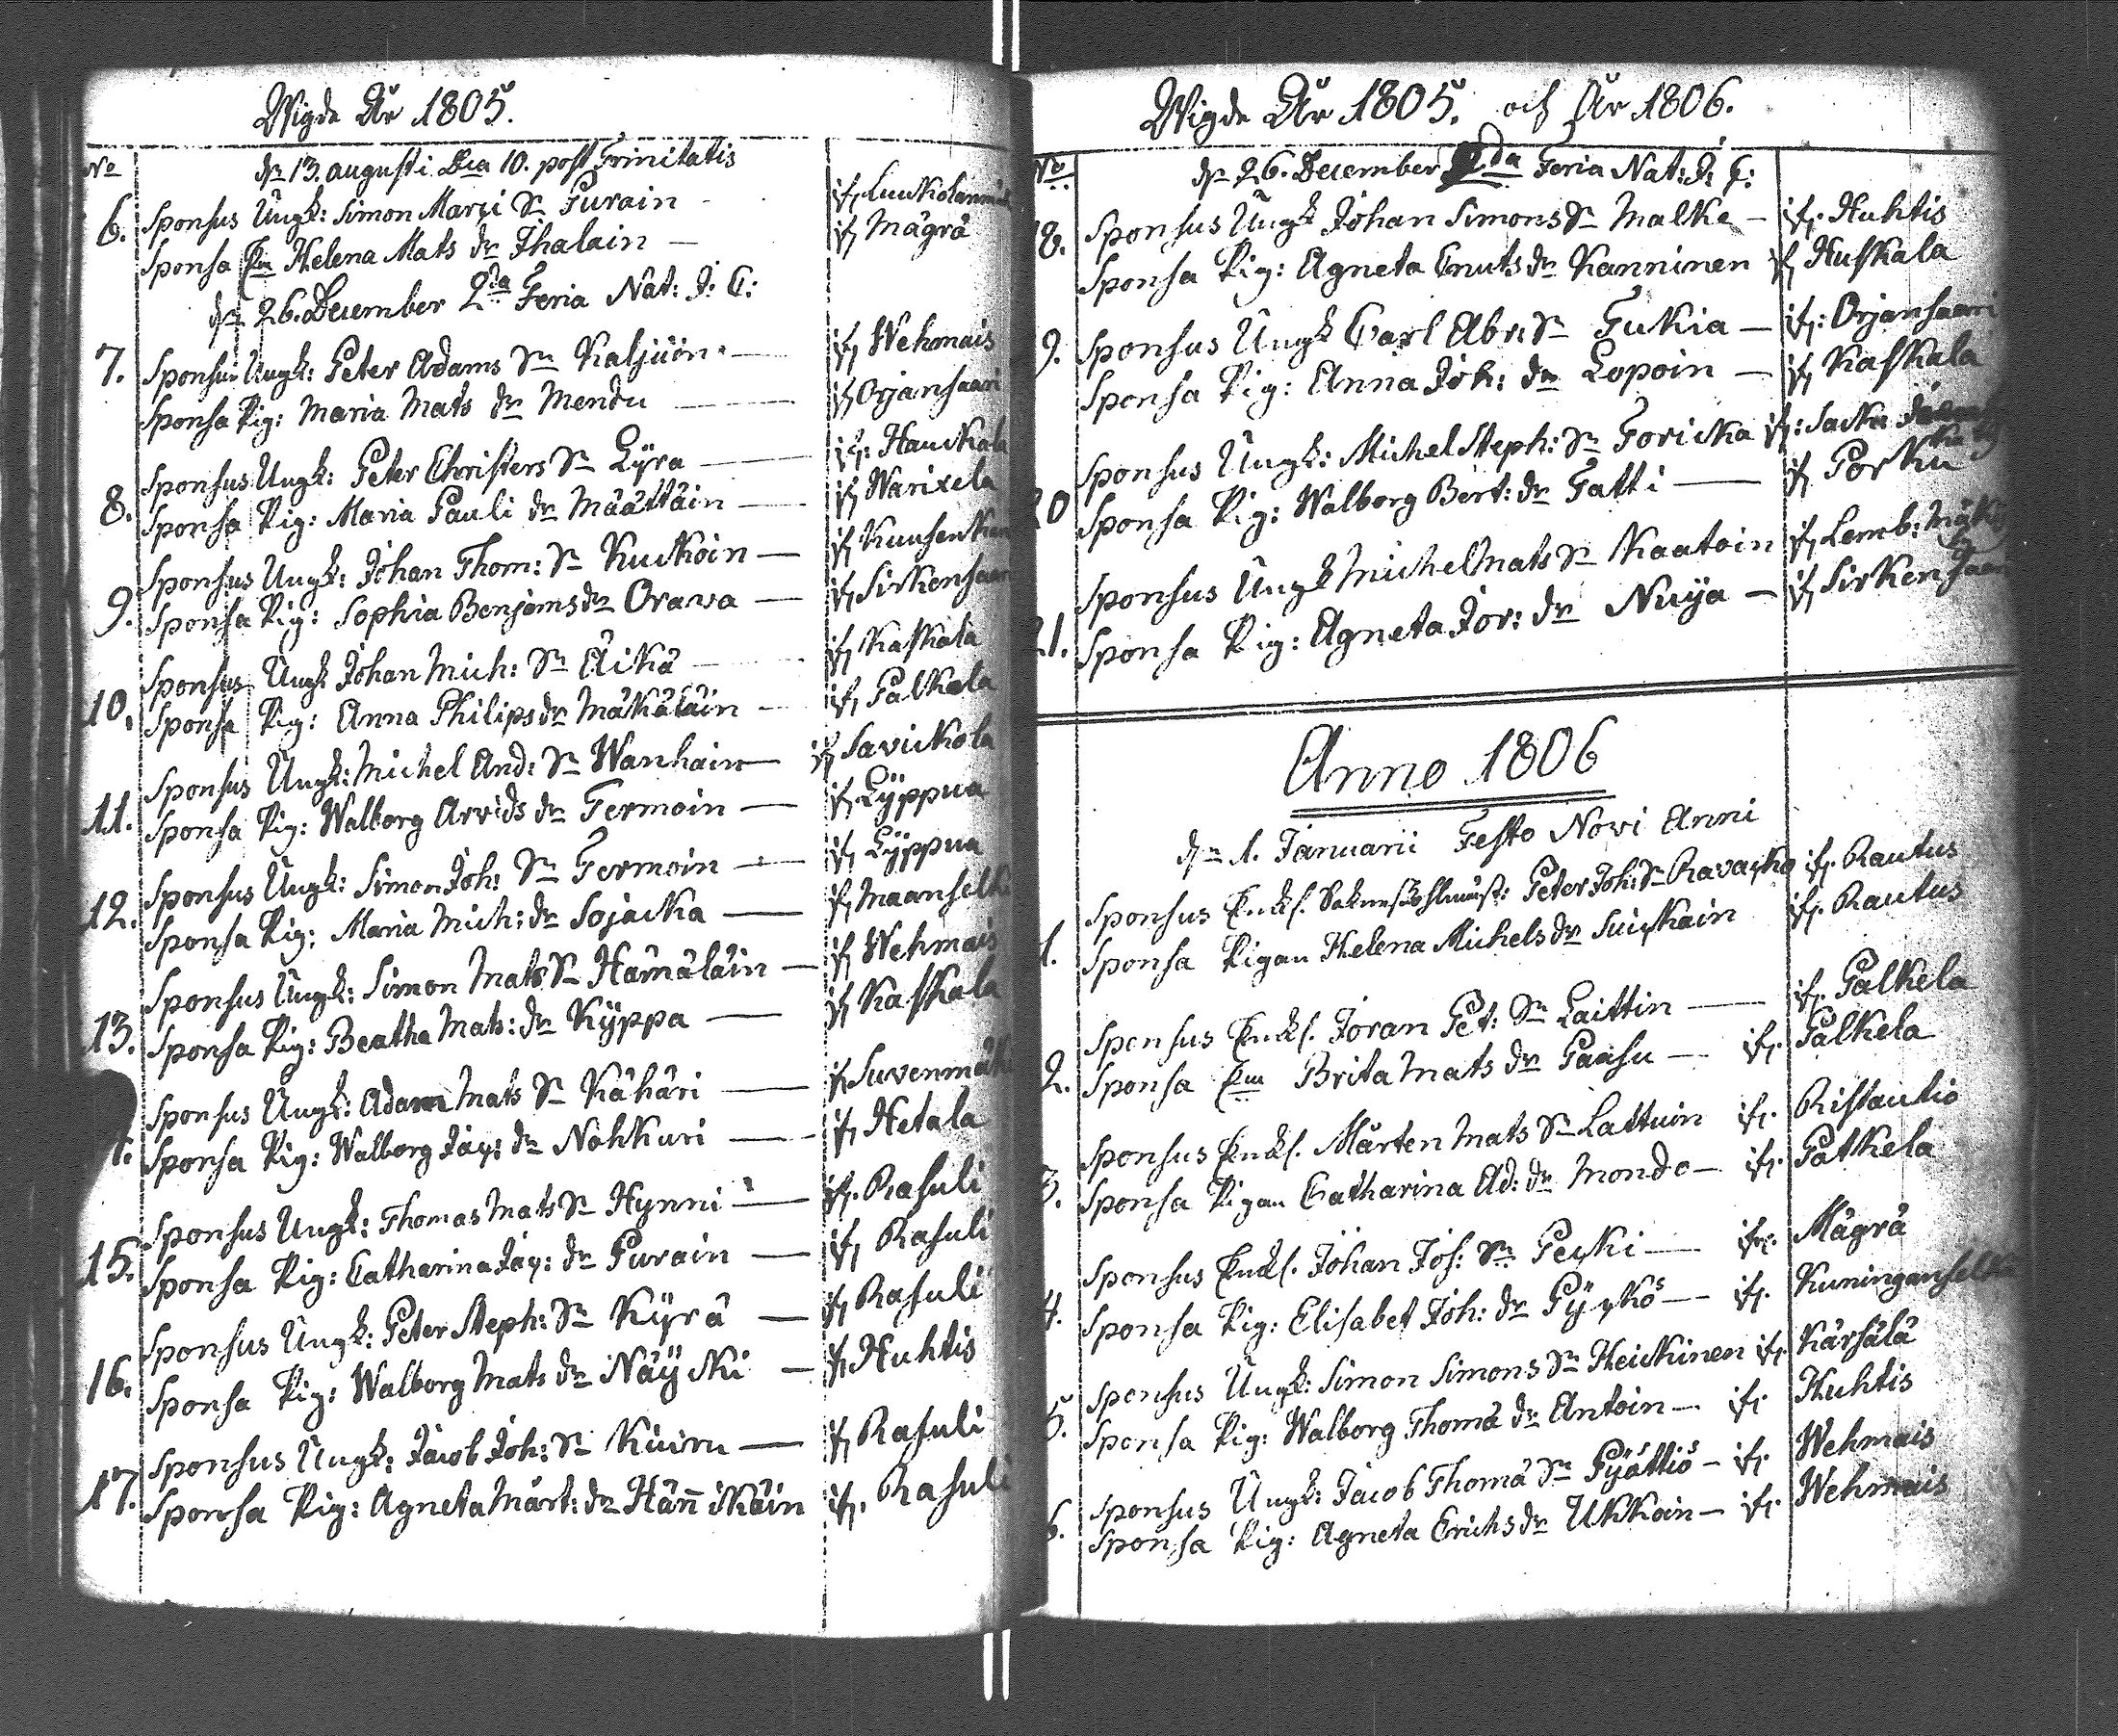 Wigde År 1805.
No
dn 13. augusti Dca 10. post Trinitatis
6. Sponsus Ungk: Simon Marci Sn Purain - ifr
Sponsa Helena Mats dr Ihalain - ifr Mägrä
dn 26. December 2da Feria Nat: J: C:
7. Sponsus Ungk: Peter Adams Sn Kaljuin - ifr Wehmais
Sponsa Pig: Maria Mats dr Mendu - ifr Orjansaari
8. Sponsus Ungk: Peter Christers Sn Lÿra - ifr: Hauckala
Sponsa Pig: Maria Pauli dr Määttäin - ifr Warixela
9. Sponsus Ungk: Johan Thom: Sn Kuckoin - ifr
Sponsa Pig: Sophia Benjams dr Orava - ifr Sirkensaari
10. Sponsus Ungk Johan Mich: Sn Äikä - ifr Kaskala
Sponsa Pig: Anna Philips dr Mäkäläin - ifr Palkela
11. Sponsus Ungk: Michel And: Sn Wanhain - ifr Savickola
Sponsa Pig: Walborg Arvids dr Termoin - ifr Lÿppua
12. Sponsus Ungk: Simon Joh: Sn Termoin - ifr Lÿppua
Sponsa Pig: Maria Mich: dr Sojacka - ifr Maanselkä
13. Sponsus Ungk: Simon Mats Sn Hämäläin - ifr Wehmais
Sponsa Pig: Beatha Mats: dr Kÿppa - ifr Kaskala
Sponsus Ungk: Adam Mats Sn Kähäri - ifr Suvenmäki
Sponsa Pig: Walborg Jac: dr Nohkuri - ifr Hetala
15. Sponsus Ungk: Thomas Mats Sn Hynni - ifr. Rasuli
Sponsa Pig: Catharina Jac: dr Purain - ifr Rasuli
16. Sponsus Ungk: Peter Steph: Sn Kÿrä - ifr Rasuli
Sponsa Pig: Walborg Mats dr Näÿcki - ifr Huhtis
17. Sponsus Ungk: Jacob Joh: Sn Kiuru - ifr Rasuli
Sponsa Pig: Agneta Mårt: dr Hännikäin ifr. Rasuli
Wigde År 1805. och År 1806.
No
dn 26. December 2da Feria Nat: J: C:
18. Sponsus Ungk Johan Simons Sn Malke - ifr. Huhtis
Sponsa Pig: Agneta Cnuts dr Kanninen ifr Huskala
9. Sponsus Ungk Carl Abr: Sn Tukia - ifr: Orjansaari
Sponsa Pig: Anna Joh: dr Lopoin - ifr Kaskala
20 Sponsus Ungk: Michel Steph: Sn Toricka ifr: Sacku
Sponsa Pig: Walborg Bert: dr Tatti - ifr Porku
21. Sponsus Ungk Michel Mats Sn Kaatoin ifr Lemb:
Sponsa Pig: Agneta Jör: dr Nuija - ifr Sirkensaari
Anno 1806
dn 1. Januarii Festo Novi Anni
1. Sponsus Enckl. Peter Joh: Sn Ravacko ifr. Rautus
Sponsa Pigan Helena Michels dr Suickain ifr. Rautus
2. Sponsus Enckl. Jöran Pet: Sn Laittin - ifr. Palkela
Sponsa Brita Mats dr Paasu - ifr. Palkela
3. Sponsus Enckl. Mårten Mats Sn Lattuin ifr. Ristautio
Sponsa Pigan Catharina Ad: dr Mondo - ifr. Patkela
4. Sponsus Enckl. Johan Jos: Sn Pecki - ifr. Mägrä
Sponsa Pig: Elisabet Joh: dr Pÿckö - ifr. Kuninganselkä
5. Sponsus Ungk: Simon Simons Sn Heickinen ifr. Kärsälä
Sponsa Pig: Walborg Thomä dr Antoin - ifr. Huhtis
6. Sponsus Ungk: Jacob Thomä Sn Pÿättiö - ifr. Wehmais
Sponsa Pig: Agneta Erichs dr Ukkoin - ifr. Wehmais